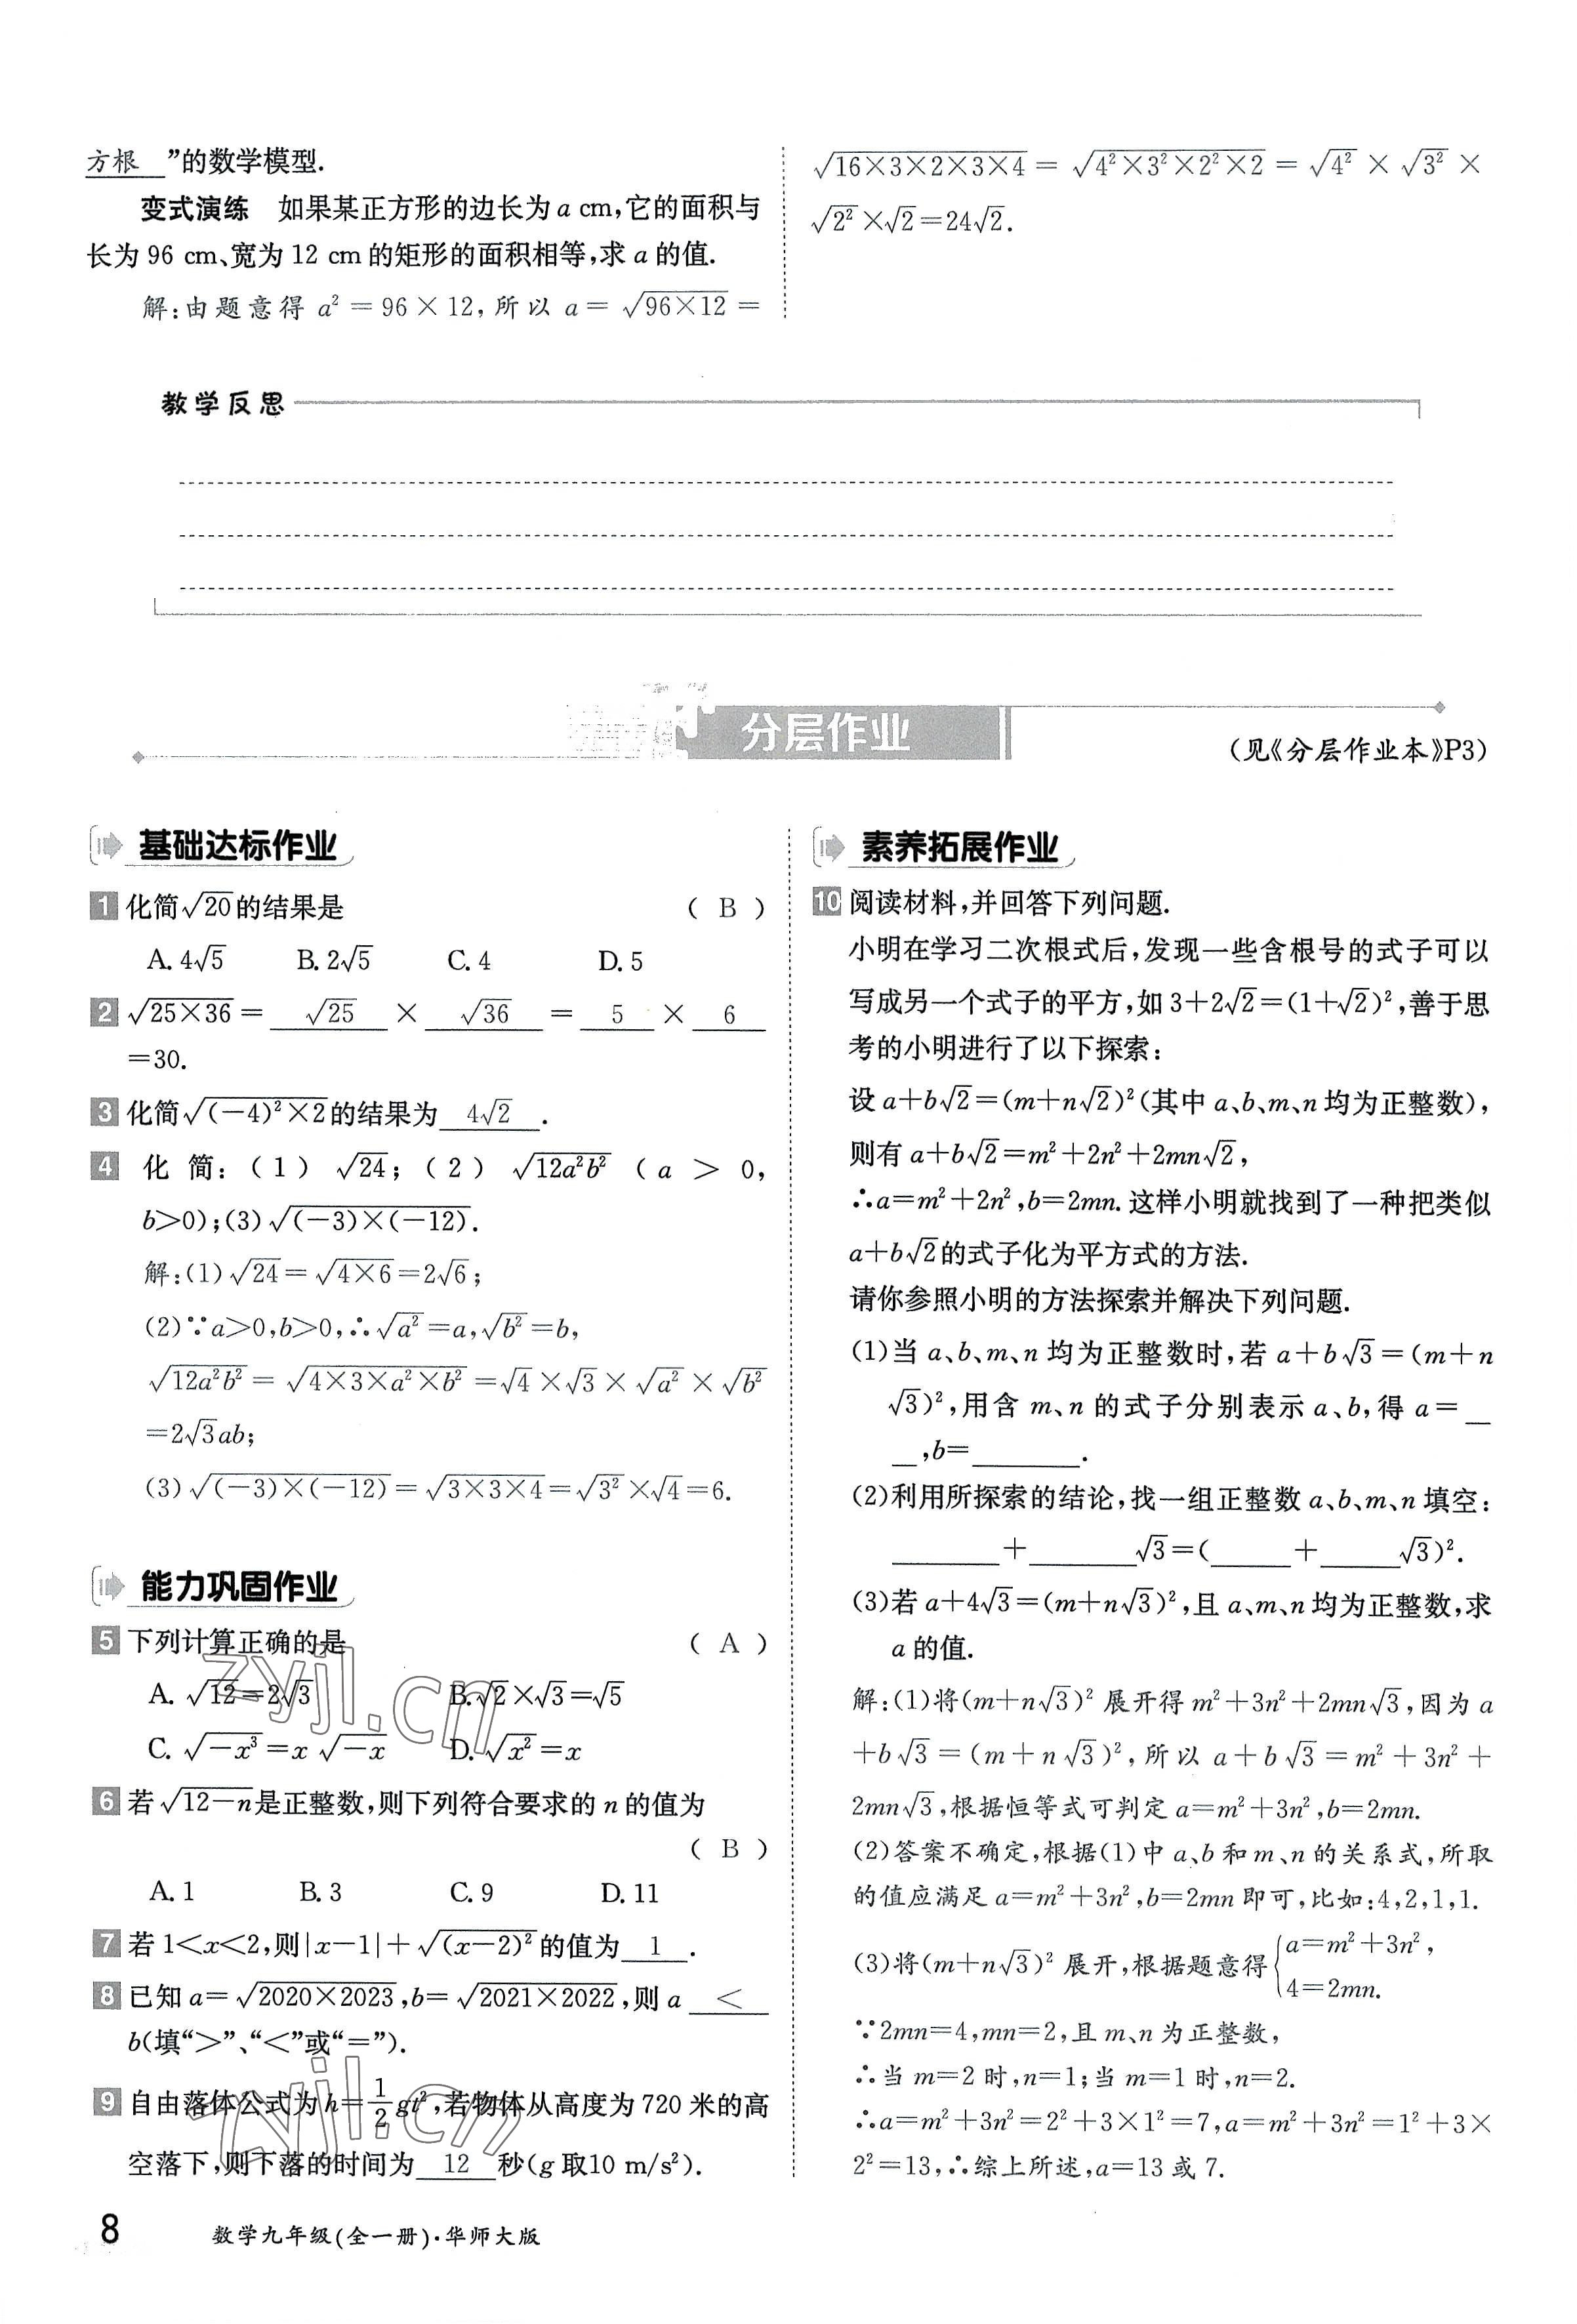 方根 ”的数学模型.
变式演练 如果某正方形的边长为 a cm,它的面积与
长为 96 cm、宽为 12 cm 的矩形的面积相等,求 a 的值.
解:由题意得 a² = 96 × 12, 所以 a = √(96×12) =
√(16×3×2×3×4) = √(4²×3²×2²×2) = √4² × √3² ×
√2² × √2 = 24√2.
教学反思
分层作业
(见《分层作业本》P3)
基础达标作业
1 化简√20的结果是 ( B )
A. 4√5 B. 2√5 C. 4 D. 5
2 √(25×36) = √25 × √36 = 5 × 6
=30.
3 化简√((−4)²×2)的结果为 4√2 .
4 化简:(1) √24;(2) √(12a²b²) (a > 0,
b>0);(3)√((−3)×(−12)).
解:(1)√24=√(4×6)=2√6;
(2)∵a>0,b>0,∴√a²=a,√b²=b,
√(12a²b²) = √(4×3×a²×b²) =√4×√3×√a²×√b²
=2√3ab;
(3)√((−3)×(−12))=√(3×3×4)=√3²×√4=6.
能力巩固作业
5 下列计算正确的是 ( A )
A. √12=2√3 B. √2×√3=√5
C. √(−x³)=x√(−x) D. √x²=x
6 若√(12−n)是正整数,则下列符合要求的 n 的值为
( B )
A. 1 B. 3 C. 9 D. 11
7 若 1<x<2,则|x−1|+√((x−2)²)的值为 1 .
8 已知 a=√(2020×2023),b=√(2021×2022),则 a <
b(填“>”、“<”或“=”).
9 自由落体公式为 h=1/2 gt²,若物体从高度为 720 米的高
空落下,则下落的时间为 12 秒(g 取10 m/s²).
素养拓展作业
10 阅读材料,并回答下列问题.
小明在学习二次根式后,发现一些含根号的式子可以
写成另一个式子的平方,如 3+2√2=(1+√2)²,善于思
考的小明进行了以下探索:
设 a+b√2=(m+n√2)²(其中 a、b、m、n 均为正整数),
则有 a+b√2=m²+2n²+2mn√2,
∴a=m²+2n²,b=2mn. 这样小明就找到了一种把类似
a+b√2的式子化为平方式的方法.
请你参照小明的方法探索并解决下列问题.
(1)当 a、b、m、n 均为正整数时,若 a+b√3=(m+n
√3)²,用含 m、n 的式子分别表示 a、b,得 a= _
_ ,b=____.
(2)利用所探索的结论,找一组正整数 a、b、m、n 填空:
____+____√3=(___+___√3)².
(3)若 a+4√3=(m+n√3)²,且 a、m、n 均为正整数,求
a 的值.
解:(1)将(m+n√3)² 展开得 m²+3n²+2mn√3,因为 a
+b√3=(m+n√3)²,所以 a+b√3=m²+3n²+
2mn√3,根据恒等式可判定 a=m²+3n²,b=2mn.
(2)答案不确定,根据(1)中 a、b 和 m、n 的关系式,所取
的值应满足 a=m²+3n²,b=2mn 即可,比如:4,2,1,1.
(3)将(m+n√3)² 展开,根据题意得{a=m²+3n²,
4=2mn.
∵2mn=4,mn=2,且 m、n 为正整数,
∴当 m=2 时,n=1;当 m=1 时,n=2.
∴a=m²+3n²=2²+3×1²=7,a=m²+3n²=1²+3×
2²=13,∴综上所述,a=13 或 7.
zyjl.cn
zyjl.cn
8 数学九年级(全一册)·华师大版